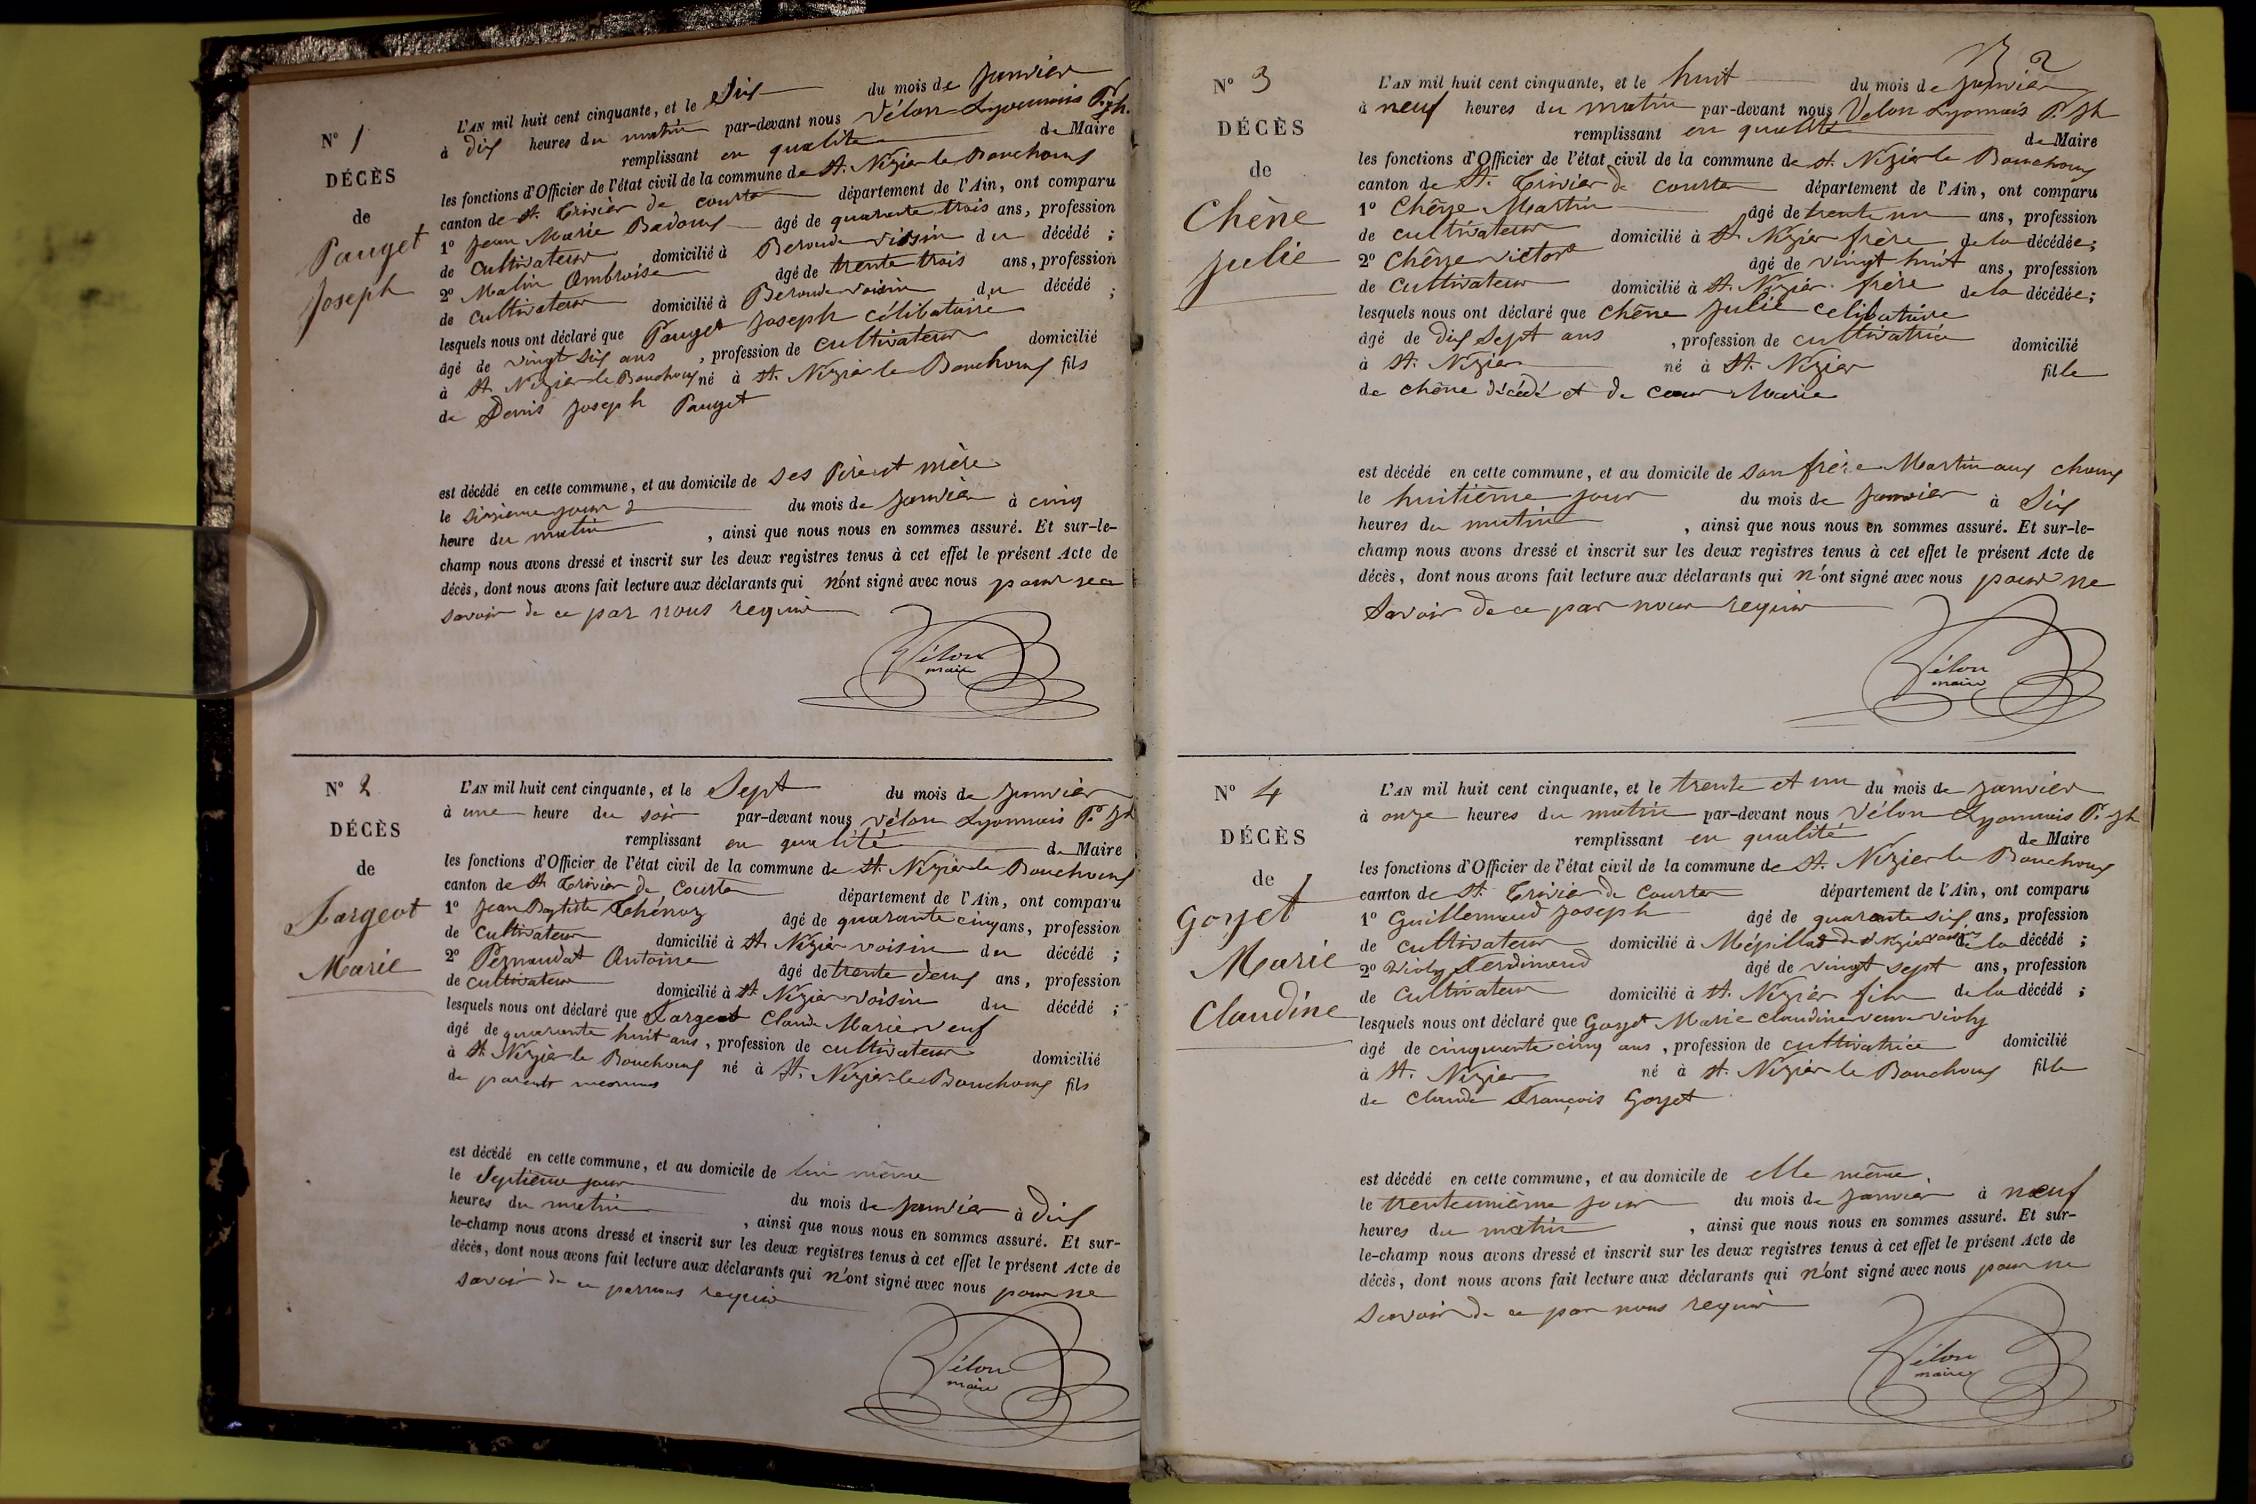 N° 1
DÉCÈS
de
Pauget
Joseph
L'AN mil huit cent cinquante, et le Six du mois de Janvier
à dix heures du matin par-devant nous Vélon Lyonnais P. Jh.
remplissant en qualité de Maire
les fonctions d'Officier de l'état civil de la commune de St. Nizier le Bouchoux
canton de St. Trivier de Courte département de l'Ain, ont comparu
1° Jean Marie Badoux âgé de quarante trois ans, profession
de Cultivateur domicilié à voisin du décédé ;
2° Malin Ambroise âgé de trente trois ans, profession
de Cultivateur domicilié à voisin du décédé ;
lesquels nous ont déclaré que Pauget Joseph célibataire
âgé de vingt six ans , profession de Cultivateur domicilié
à St Nizier le Bouchoux né à St. Nizier le Bouchoux fils
de Denis Joseph Pauget
est décédé en cette commune, et au domicile de ses Père et mère
le sixième jour du mois de Janvier à cinq
heure du matin , ainsi que nous nous en sommes assuré. Et sur-le-
champ nous avons dressé et inscrit sur les deux registres tenus à cet effet le présent Acte de
décès, dont nous avons fait lecture aux déclarants qui n'ont signé avec nous pour ne
savoir de ce par nous requis
Vélon
maire
N° 2
DÉCÈS
de
Fargeot
Marie
L'AN mil huit cent cinquante, et le Sept du mois de Janvier
à une heure du soir par-devant nous Vélon Lyonnais P. Jh
remplissant en qualité de Maire
les fonctions d'Officier de l'état civil de la commune de St. Nizier le Bouchoux
canton de St Trivier de Courte département de l'Ain, ont comparu
1° Jean Baptiste Thénoz âgé de quarante cinq ans, profession
de Cultivateur domicilié à St. Nizier voisin du décédé ;
2° Pernaudat Antoine âgé de trente deux ans, profession
de cultivateur domicilié à St Nizier voisin du décédé ;
lesquels nous ont déclaré que Fargeot Claude Marie veuf
âgé de quarante huit ans , profession de cultivateur domicilié
à St. Nizier le Bouchoux né à St. Nizier le Bouchoux fils
de parents inconnus
est décédé en cette commune, et au domicile de lui même
le Septième jour du mois de Janvier à dix
heures du matin , ainsi que nous nous en sommes assuré. Et sur-
le-champ nous avons dressé et inscrit sur les deux registres tenus à cet effet le présent Acte de
décès, dont nous avons fait lecture aux déclarants qui n'ont signé avec nous pour ne
savoir de ce par nous requis
Vélon
maire
2
N° 3
DÉCÈS
de
Chêne
Julie
L'AN mil huit cent cinquante, et le huit du mois de Janvier
à neuf heures du matin par-devant nous Vélon Lyonnais P. Jh
remplissant en qualité de Maire
les fonctions d'Officier de l'état civil de la commune de St. Nizier le Bouchoux
canton de St. Trivier de Courte département de l'Ain, ont comparu
1° Chêne Martin âgé de trente un ans, profession
de cultivateur domicilié à St Nizier frère de la décédée ;
2° Chêne Victor âgé de vingt huit ans, profession
de cultivateur domicilié à St. Nizier frère de la décédée ;
lesquels nous ont déclaré que Chêne Julie célibataire
âgé de dix sept ans , profession de cultivatrice domicilié
à St. Nizier né à St. Nizier fille
de Chêne décédé et de Cœur Marie
est décédé en cette commune, et au domicile de son frère Martin aux
le huitième jour du mois de Janvier à Six
heures du matin , ainsi que nous nous en sommes assuré. Et sur-le-
champ nous avons dressé et inscrit sur les deux registres tenus à cet effet le présent Acte de
décès, dont nous avons fait lecture aux déclarants qui n'ont signé avec nous pour ne
savoir de ce par nous requis
Vélon
maire
N° 4
DÉCÈS
de
Goyet
Marie
Claudine
L'AN mil huit cent cinquante, et le trente et un du mois de Janvier
à onze heures du matin par-devant nous Vélon Lyonnais P. Jh
remplissant en qualité de Maire
les fonctions d'Officier de l'état civil de la commune de St. Nizier le Bouchoux
canton de St. Trivier de Courte département de l'Ain, ont comparu
1° Guillemaud Joseph âgé de quarante six ans, profession
de cultivateur domicilié à de la décédé ;
2° Violy Ferdinand âgé de vingt sept ans, profession
de Cultivateur domicilié à St. Nizier fils de la décédé ;
lesquels nous ont déclaré que Goyet Marie Claudine veuve Violy
âgé de cinquante cinq ans , profession de cultivatrice domicilié
à St. Nizier né à St. Nizier le Bouchoux fille
de Claude François Goyet
est décédé en cette commune, et au domicile de elle même
le trenteunième jour du mois de Janvier à neuf
heures du matin , ainsi que nous nous en sommes assuré. Et sur-
le-champ nous avons dressé et inscrit sur les deux registres tenus à cet effet le présent Acte de
décès, dont nous avons fait lecture aux déclarants qui n'ont signé avec nous pour ne
savoir de ce par nous requis
Vélon
maire